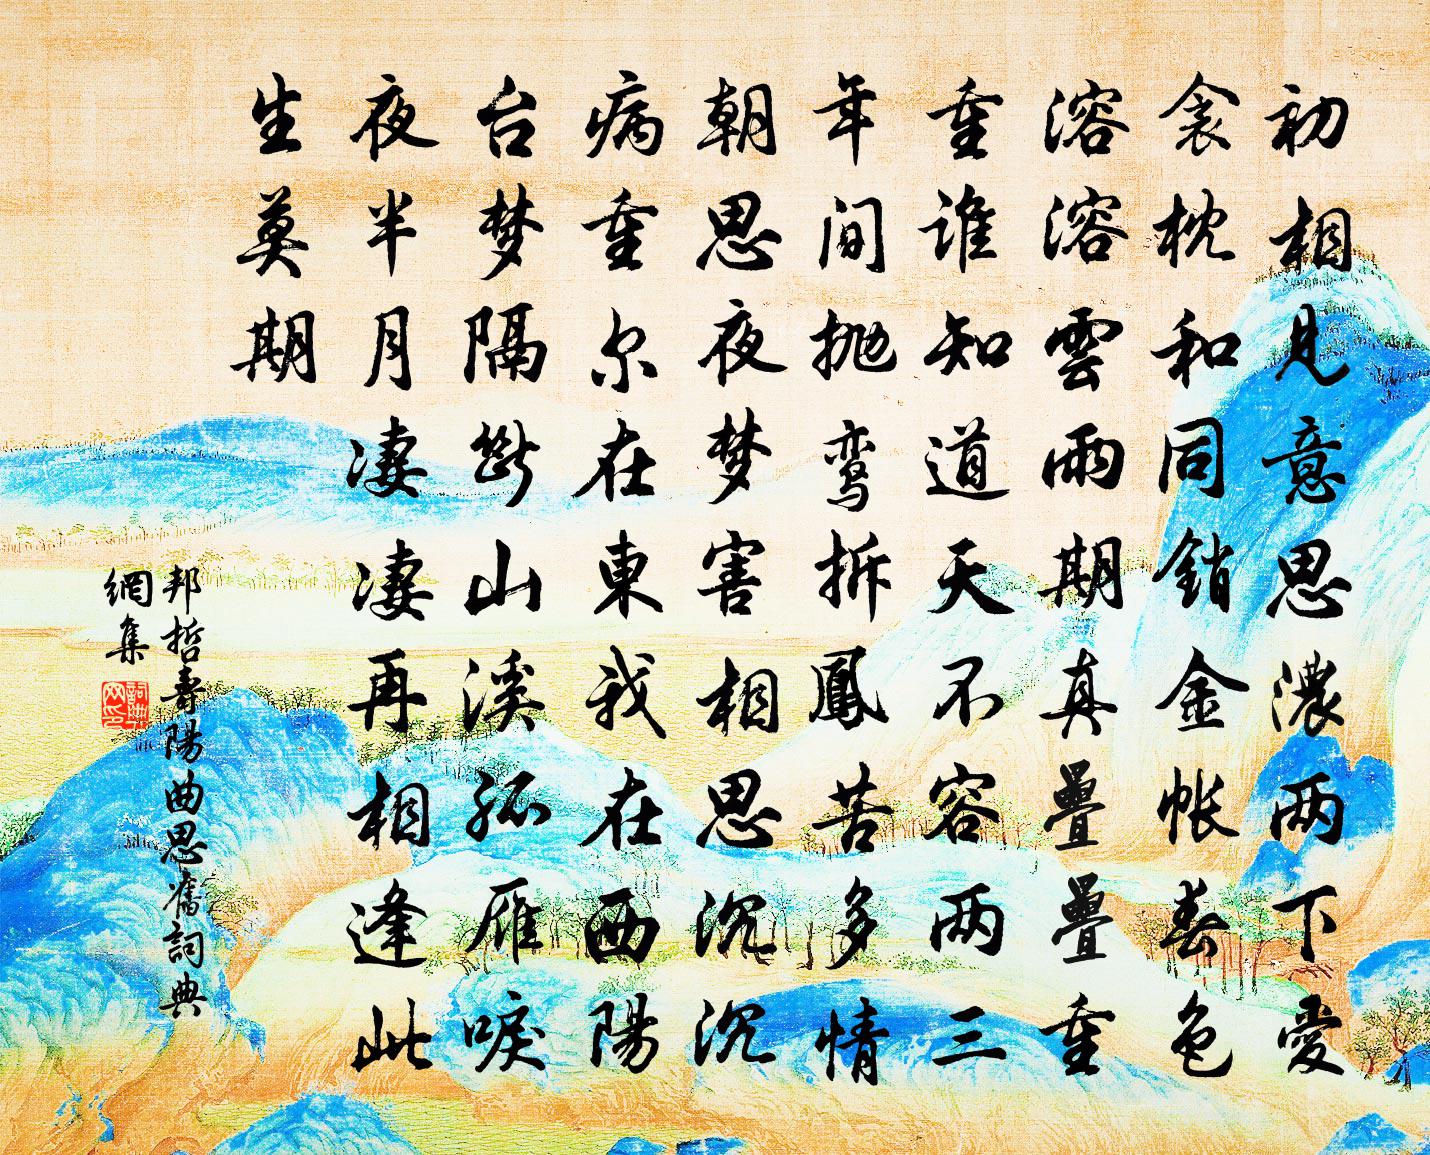 初相见意思濃两下愛
衾枕和同銷金帐春色
溶溶雲雨期真疊疊重
重谁知道天不容两三
年间抛鸾拆鳳苦多情
朝思夜梦害相思沉沉
病重尔在東我在西陽
台梦隔斷山溪孤雁唳
夜半月凄凄再相逢此
生莫期
邦哲寿陽曲思舊詞典
網集
詞典
网印